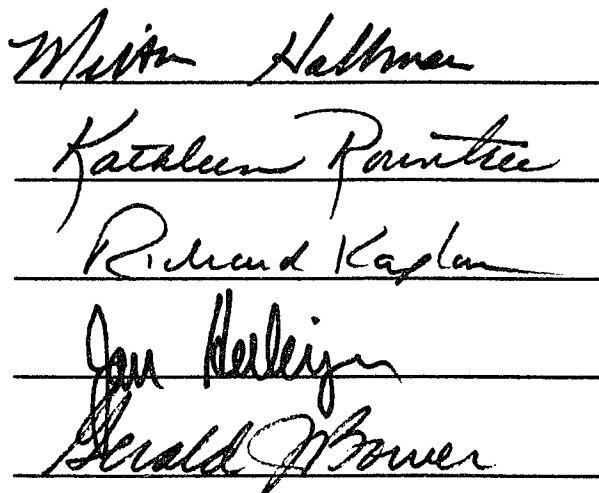 Milton Hallman
Kathleen Rountree
Richard Kaplan
Jan
Gerald J Bower